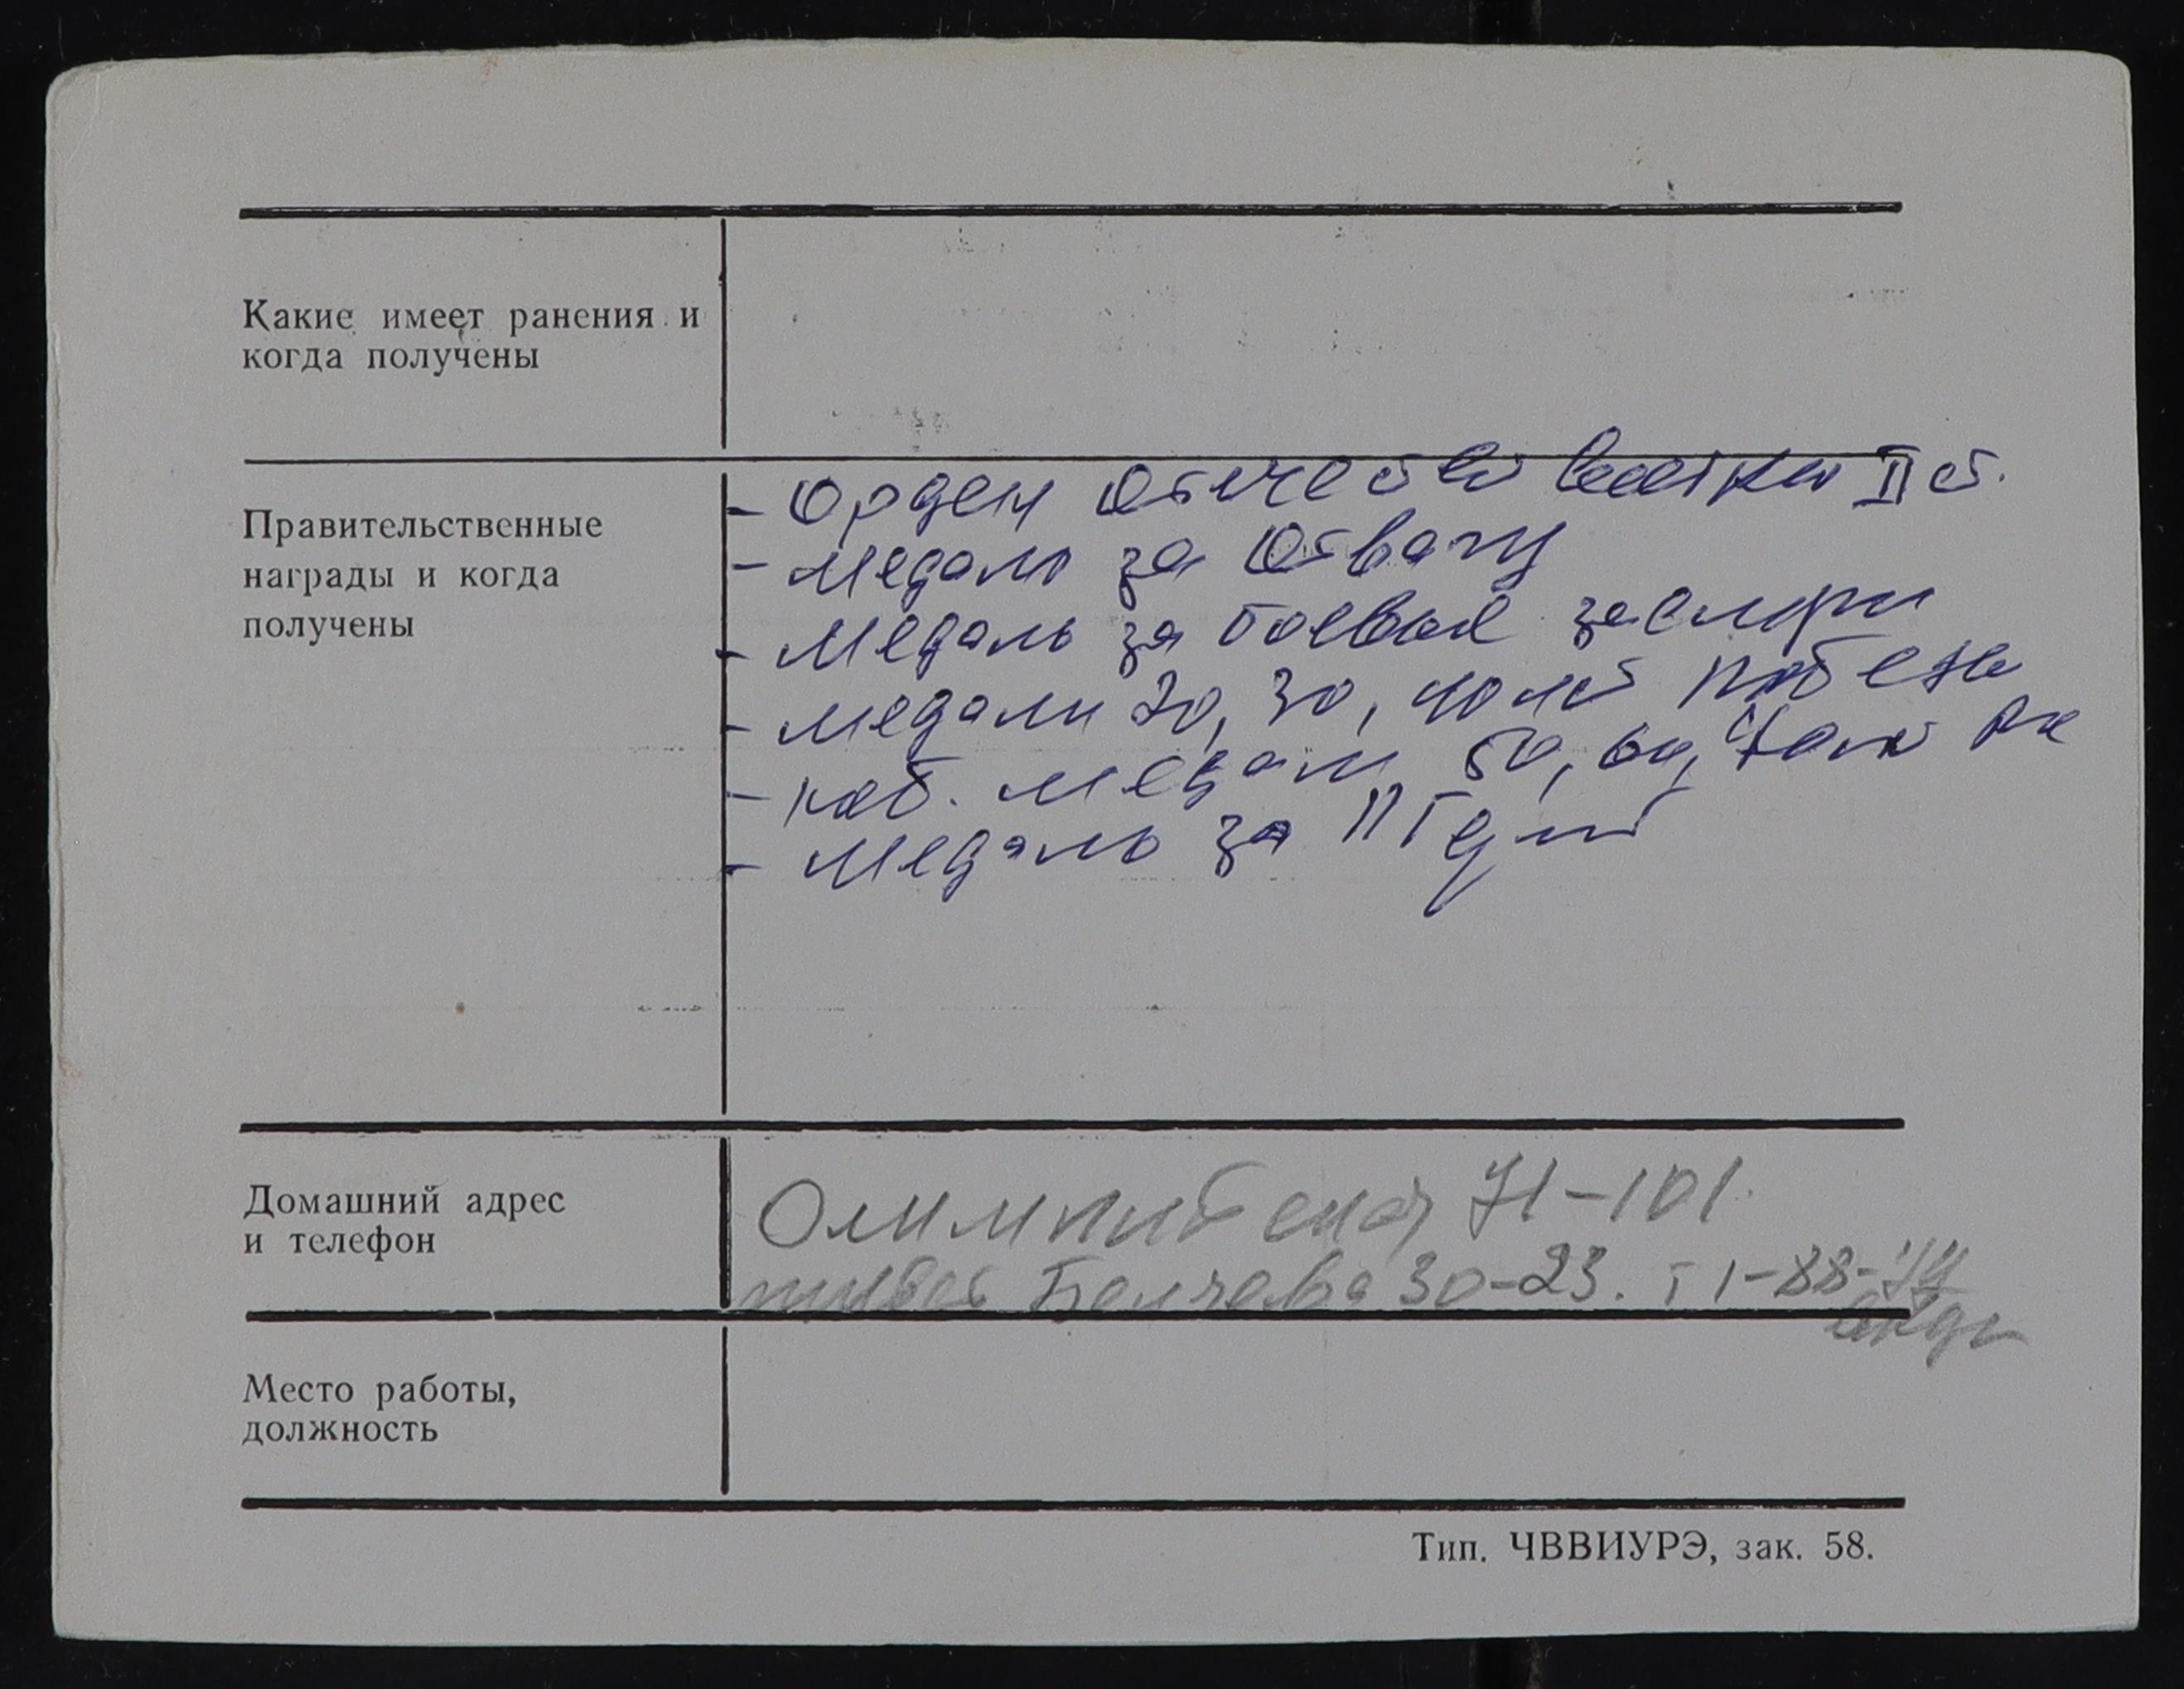 Какие имеет ранения и
когда получены
Правительственные
награды и когда
получены
- Орден Отечеств войны II ст.
- Медаль за Отвагу
- Медаль за боевые заслуги
- медали 20, 30, 40 лет победы
- юб. медали 50, 60, 70 лет
- Медаль за
Домашний адрес
и телефон
Олимпийская 71-101.
Белчева 30-23. т 1-88-44
Место работы,
должность
Тип. ЧВВИУРЭ, зак. 58.